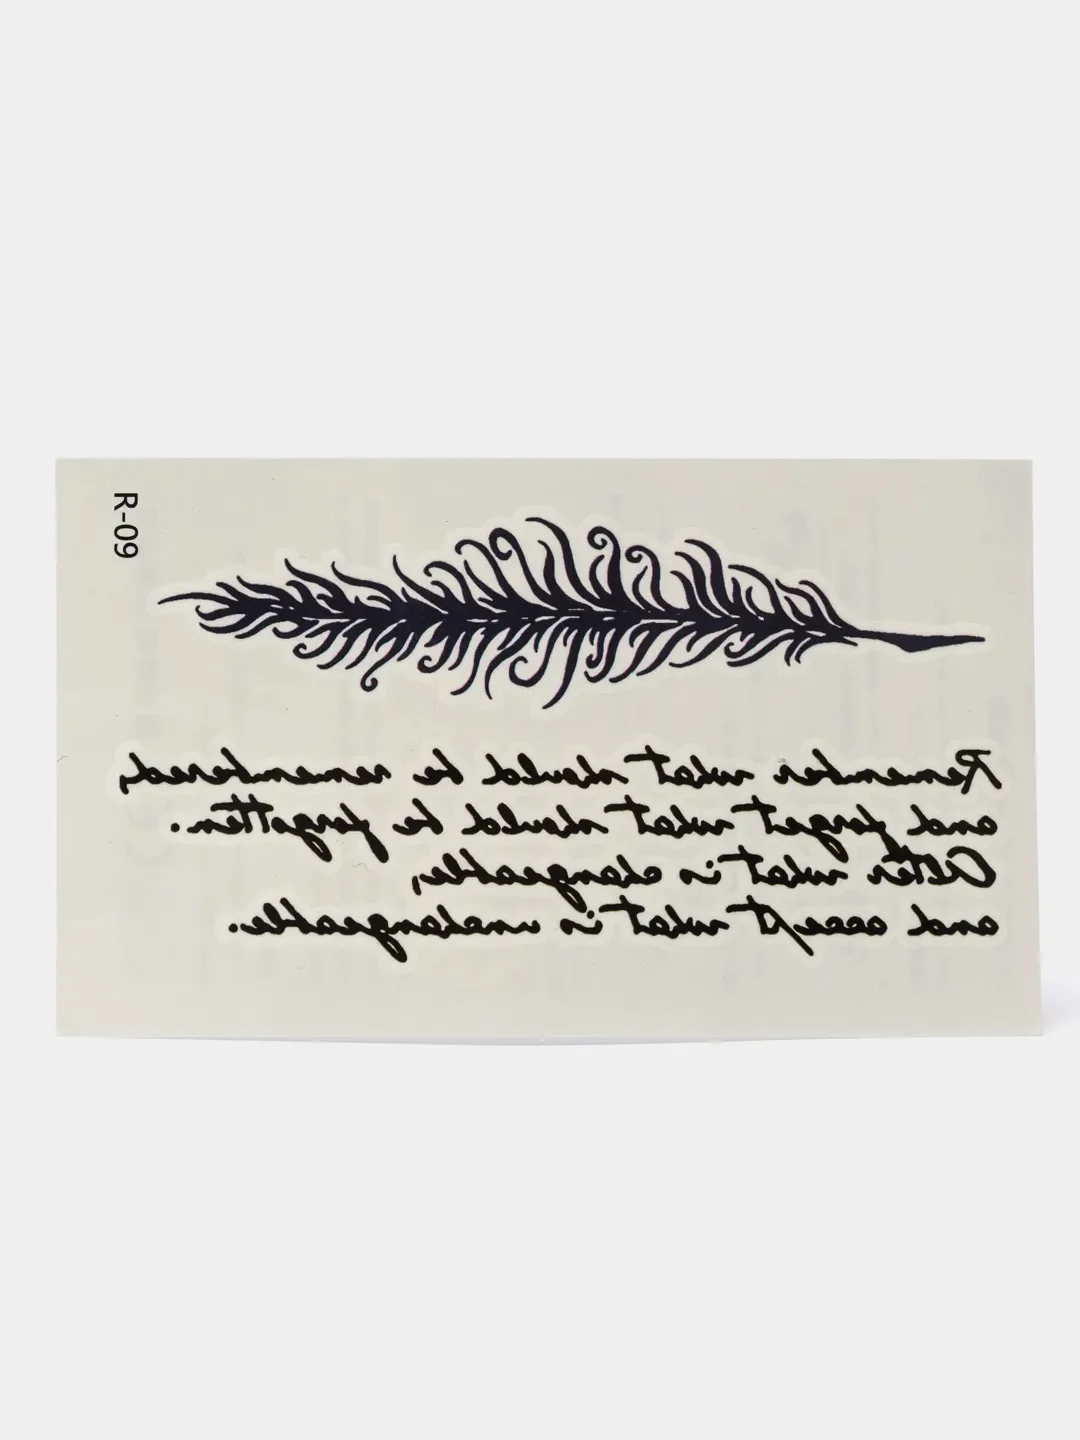 R-09
Remember what should be remembered,
and forget what should be forgotten.
Alter what is changeable,
and accept what is unchangeable.